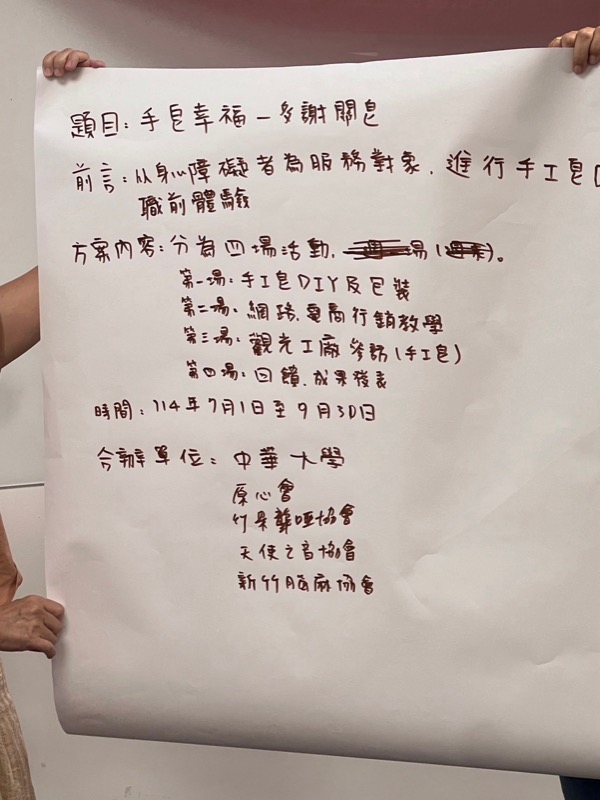 題目：手皂幸福－多謝關皂
前言：以身心障礙者為服務對象，進行手工皂
職前體驗
方案內容：分為四場活動，場（）。
第一場：手工皂DIY及包裝
第二場：網路、電商行銷教學
第三場：觀光工廠參訪（手工皂）
第四場：回饋、成果發表
時間：114年7月1日至9月30日
合辦單位：中華大學
原心會
竹県聾啞協會
天使之音協會
新竹腦麻協會